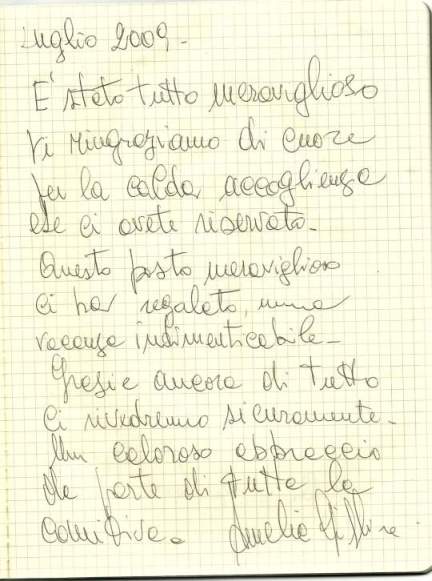 Luglio 2009-
E' stato tutto meraviglioso
Vi ringraziamo di cuore
per la calda accoglienza
che ci avete riservato-
Questo posto meraviglioso
ci ha regalato, una
vacanza indimenticabile-
Grazie ancora di tutto
Ci rivedremo sicuramente.
Un caloroso abbraccio
da parte di tutta la
comitiva. Amelia